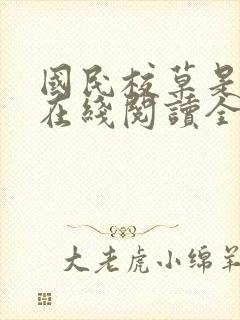 國民校草是
在綫閱讀全
大老虎小绵羊